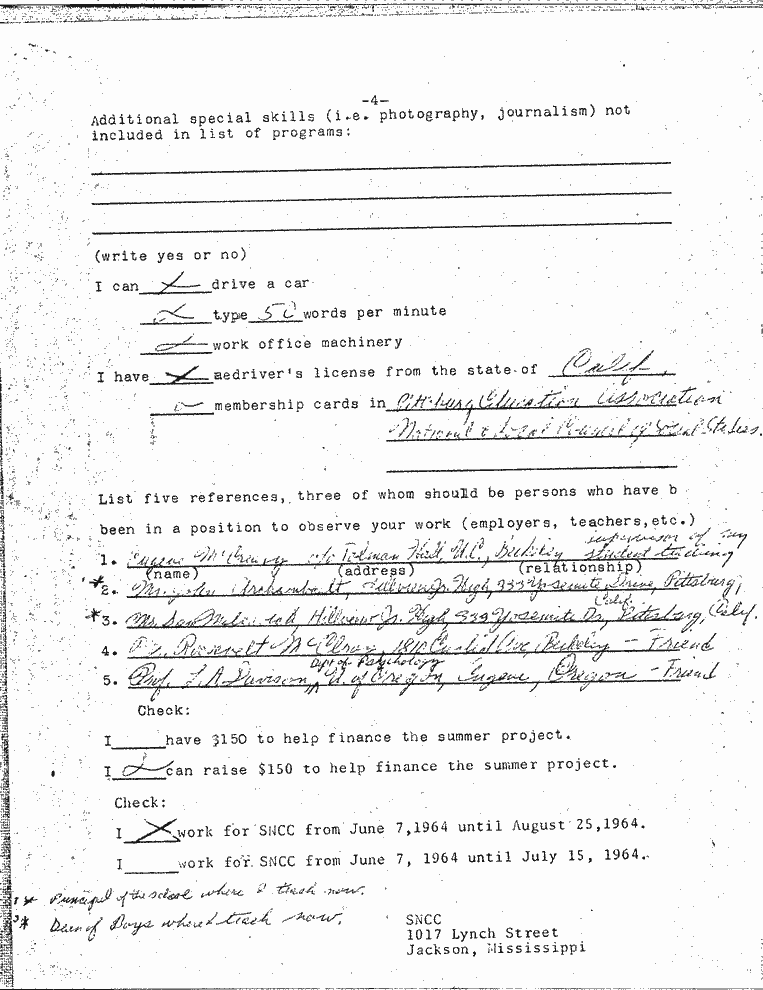 -4-
Additional special skills (i.e. photography, journalism) not
included in list of programs:
(write yes or no)
I can X drive a car
type 50 words per minute
work office machinery
I have X aedriver's license from the state of Calif.
membership cards in Pittsburg Education Association
National & Local Council of Social Studies.
List five references, three of whom should be persons who have b
been in a position to observe your work (employers, teachers,etc.)
supervisor of my
1. Eugene McCreary c/o Tolman Hall, U.C., Berkeley student teaching
(name) (address) (relationship)
*2. Mr. John Archambault, Hillview Jr. High, 333 Yosemite Drive, Pittsburg,
Calif.
*3. Mr. Sam Hillview Jr. High, 333 Yosemite Dr, Pittsburg, Calif.
4. Roosevelt McElroy, Ave, Berkeley - Friend
Dept of Psychology
5. Prof. L. A. Davison, U. of Oregon, Eugene, Oregon - Friend
Check:
I have $150 to help finance the summer project.
I can raise $150 to help finance the summer project.
Check:
I X work for SNCC from June 7,1964 until August 25,1964.
I work for SNCC from June 7, 1964 until July 15, 1964.
* Principal of the school where I teach now.
* Dean of Boys where I teach now.
SNCC
1017 Lynch Street
Jackson, Mississippi